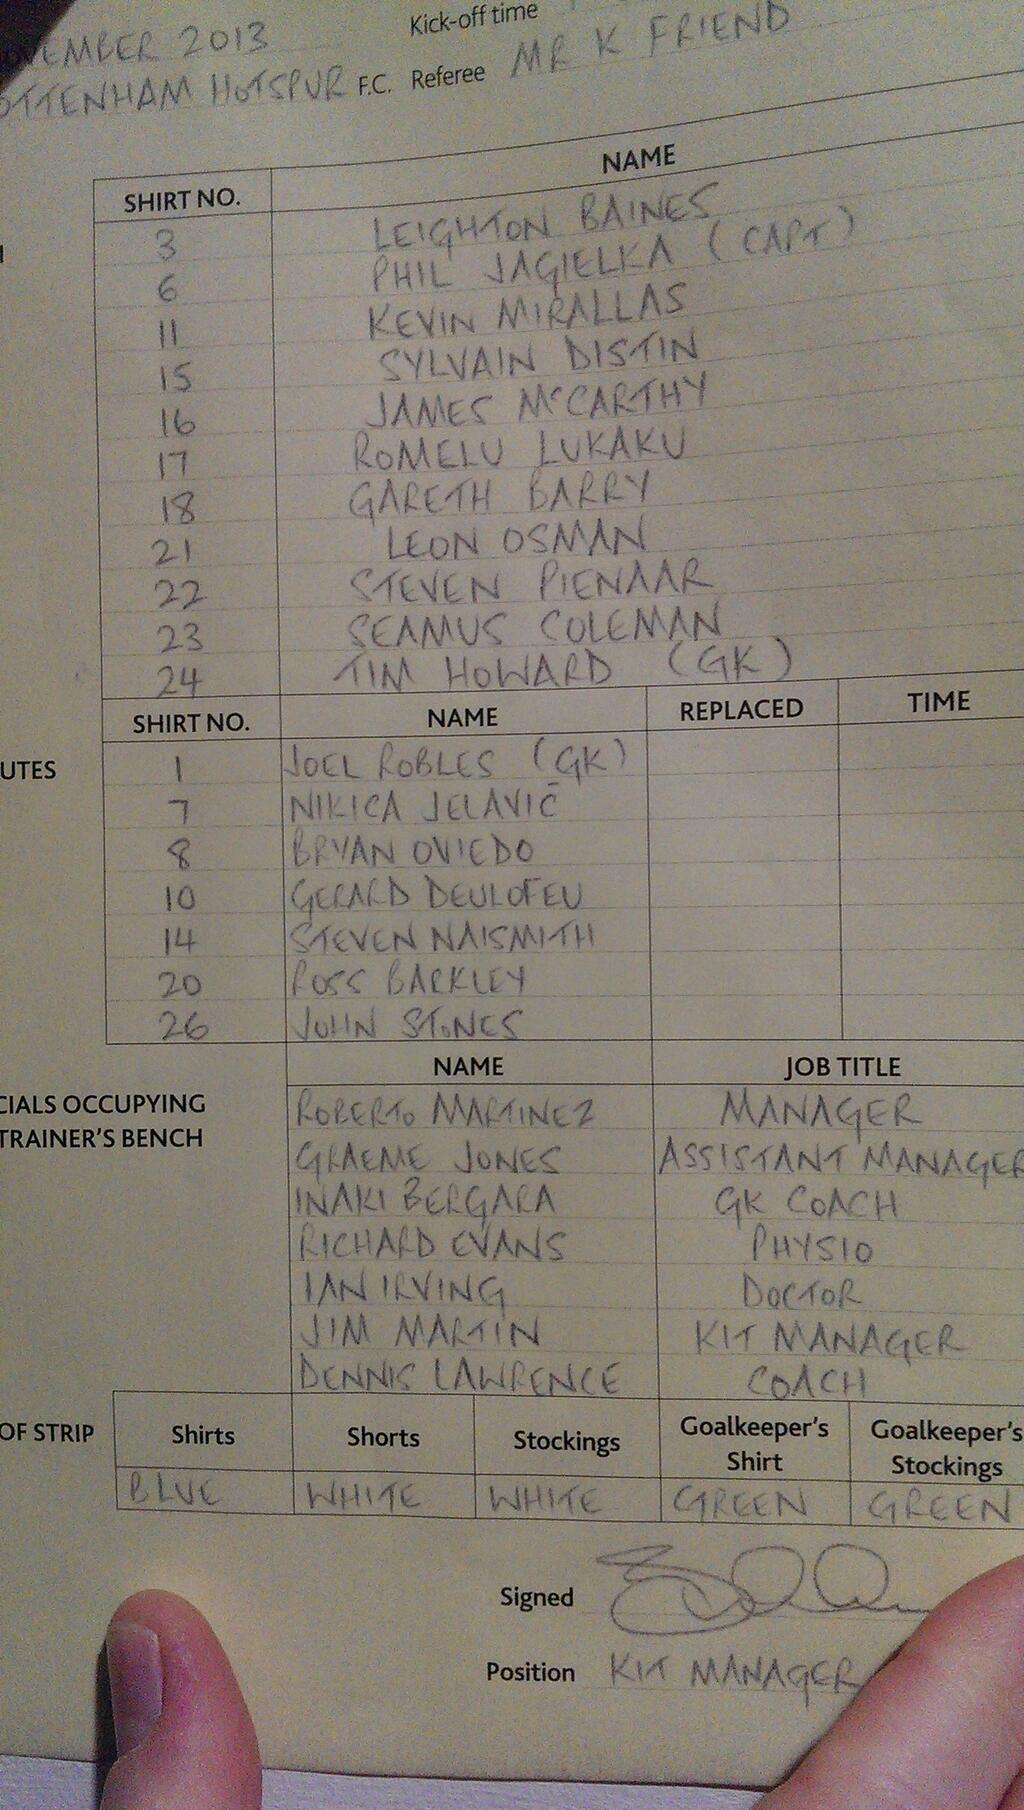 Kick-off time
NOVEMBER 2013
TOTTENHAM HOTSPUR F.C. Referee MR K FRIEND
SHIRT NO. NAME
3 LEIGHTON BAINES
6 PHIL JAGIELKA (CAPT)
11 KEVIN MIRALLAS
15 SYLVAIN DISTIN
16 JAMES McCARTHY
17 ROMELU LUKAKU
18 GARETH BARRY
21 LEON OSMAN
22 STEVEN PIENAAR
23 SEAMUS COLEMAN
24 TIM HOWARD (GK)
SHIRT NO. NAME REPLACED TIME
UTES 1 JOEL ROBLES (GK)
7 NIKICA JELAVIĆ
8 BRYAN OVIEDO
10 GERARD DEULOFEU
14 STEVEN NAISMITH
20 ROSS BARKLEY
26 JOHN STONES
NAME JOB TITLE
CIALS OCCUPYING ROBERTO MARTINEZ MANAGER
TRAINER'S BENCH GRAEME JONES ASSISTANT MANAGER
INAKI BERGARA GK COACH
RICHARD EVANS PHYSIO
IAN IRVING DOCTOR
JIM MARTIN KIT MANAGER
DENNIS LAWRENCE COACH
OF STRIP Shirts Shorts Stockings Goalkeeper's Shirt Goalkeeper's Stockings
BLUE WHITE WHITE GREEN GREEN
Signed
Position KIT MANAGER